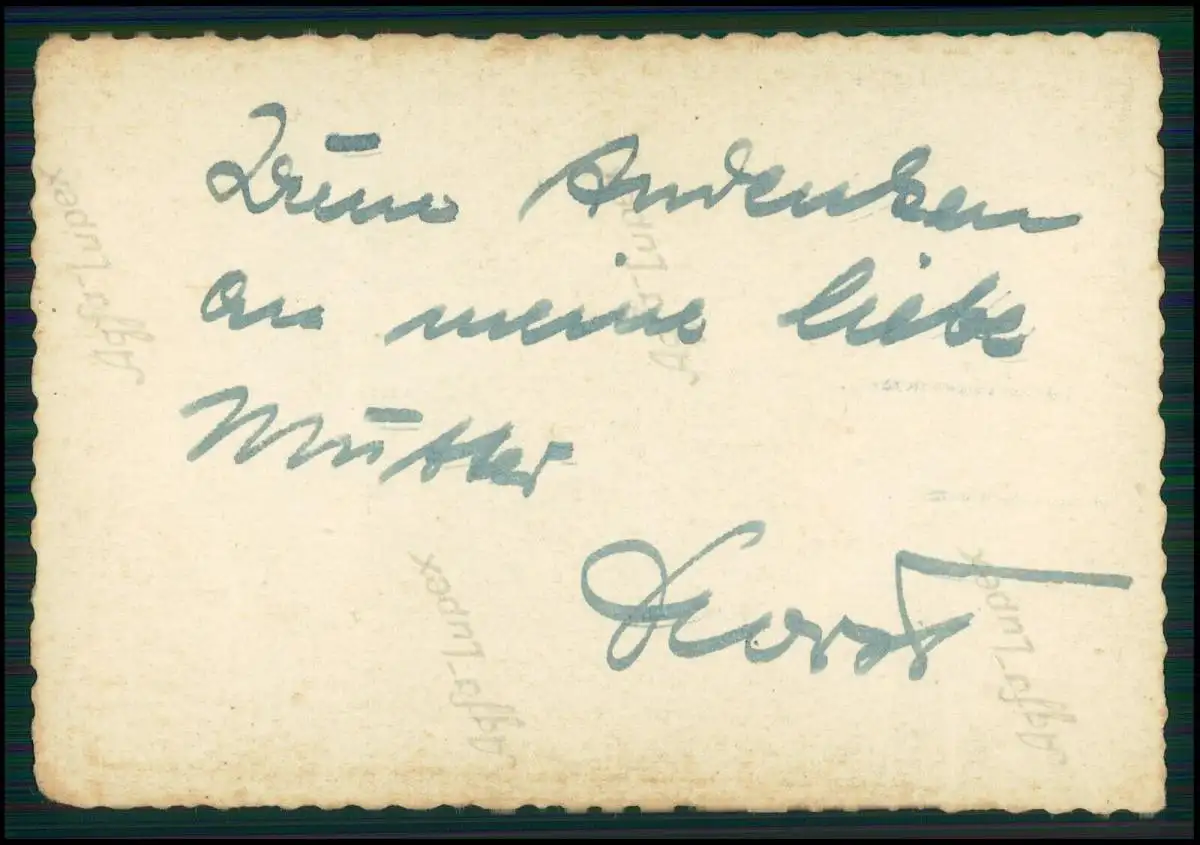 Zum Andenken
an meine liebe
Mutter
Horst
Agfa-Lupex
Agfa-Lupex
Agfa-Lupex
Agfa-Lupex